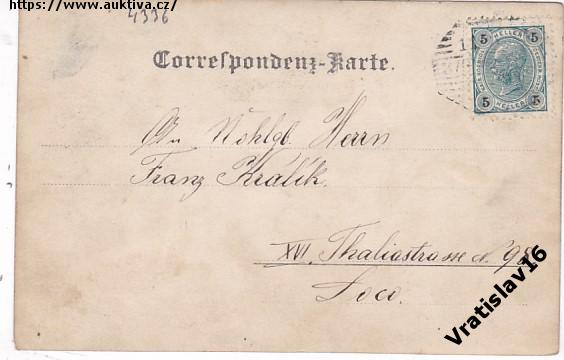 https://www.auktiva.cz/
4336
Correspondenz-Karte.
5 HELLER 5
5 HELLER 5
An Wohlgb. Herrn
Franz Králík.
XVI. Thaliastrasse N. 98
Loco.
Vratislav16